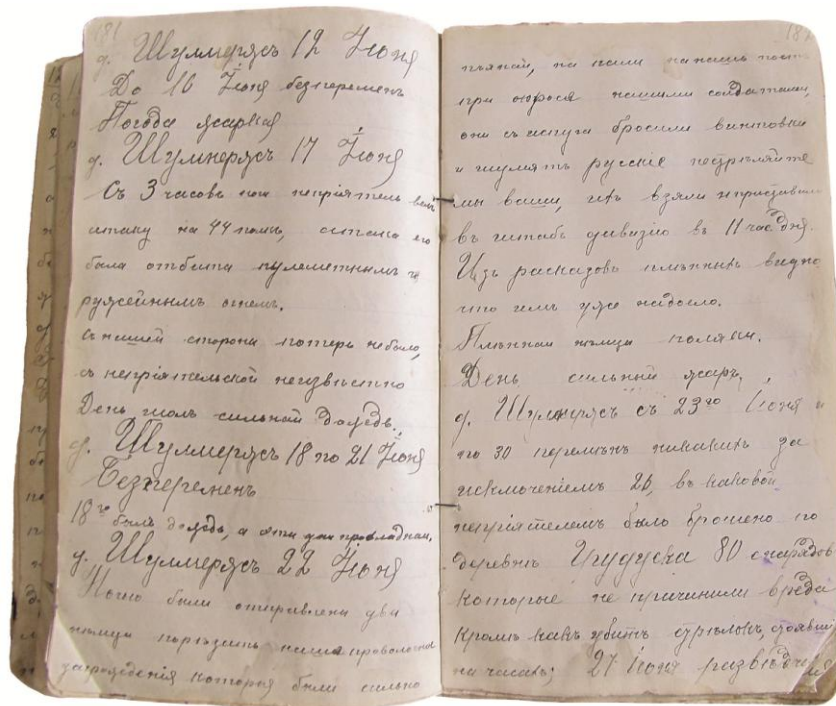 181
д. Шуммерясъ 12 Іюня
До 16 Іюня безперемен
Погода жаркая
д. Шуммерясъ 17 Іюня
Съ 3 часовъ ночи непріятель велъ
атаку на 44 полкъ, атака его
была отбита пулеметнымъ и
ружейнымъ огнемъ.
Съ нашей стороны потерь небыло,
съ непріятельской неизвѣстно
День шолъ сильный дождь.
д. Шуммерясъ 18 по 21 Іюня
Безперемень
18го былъ дождь, а эти дни прохладныя.
д. Шуммерясъ 22 Іюня
Ночью были отправлены два
нѣмца порѣзать наши проволочныя
загражденія которыя были сильно
пьяны, на на нашъ постъ
при опросѣ нашими солдатами,
они съ испуга бросили винтовки
и шумятъ русскіе нестрѣляйте
мы ваши, ихъ взяли и приставили
въ штабъ дивизію въ 11 час дня.
Изъ расказовъ плѣнныхъ видно
что имъ уже надоело.
Плѣнныи нѣмцы поляки.
День сильный жаръ.
д. Шуммерясъ съ 23го Іюня и
по 30 перемѣнъ никакихъ за
исключеніемъ 26, въ каковой
непріятелемъ было брошено по
деревнѣ 80 снарядов
которые не причинили вреда
кромѣ какъ убитъ стрѣлокъ, стоявш
на часахъ; 27 Іюня развѣдчик